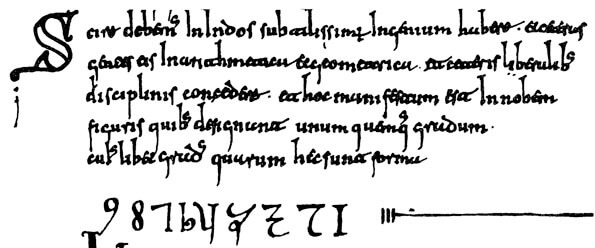 Scire debemus In Indos subtilissimum Ingenium habere. et ceteras
gentes eis In arithmetica et geometrica. et ceteris liberalibus
disciplinis concedere. et hoc manifestum est In nobem
figuris quibus designant unum quemque gradum.
cuiuslibet gradus. quarum hec sunt forma
9 8 7 6 5 4 3 2 1